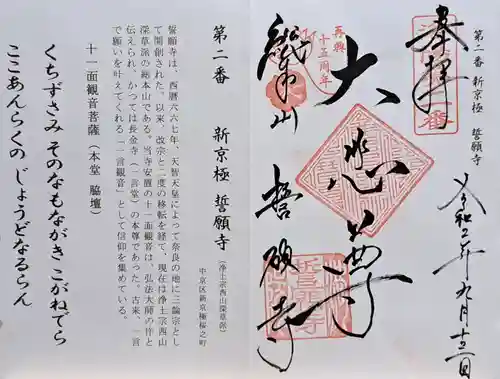 第二番 新京極 誓願寺
奉拝
令和二年九月十三日
再興
十五周年
大悲尊
深草山
誓願寺
第二番 新京極 誓願寺
(浄土宗西山深草派)
中京区新京極桜之町
誓願寺は、西暦六六七年、天智天皇によって奈良の地に三論宗とし
て開創された。以来、改宗と二度の移転を経て、現在は浄土宗西山
深草派の総本山である。当寺安置の十一面観音は、弘法大師の作と
伝えられ、かつては長金寺(一言堂)の本尊であった。古来、一言
で願いを叶えてくれる「一言観音」として信仰を集めている。
十一面観音菩薩(本堂 脇壇)
くちずさみ そのなもながき こがねでら
ここあんらくの じょうどなるらん